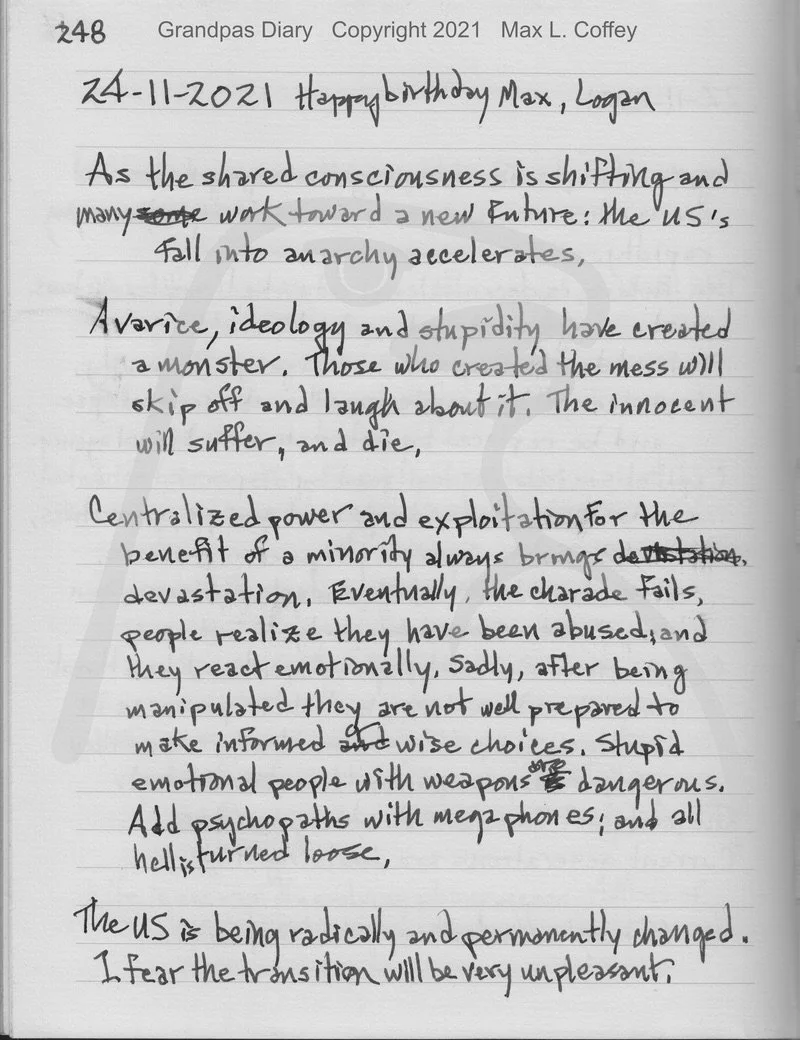 248 Grandpas Diary Copyright 2021 Max L. Coffey
24-11-2021 Happy birthday Max, Logan
As the shared consciousness is shifting and
many some work toward a new future: the US's
fall into anarchy accelerates,
Avarice, ideology and stupidity have created
a monster. Those who created the mess will
skip off and laugh about it. The innocent
will suffer, and die,
Centralized power and exploitation for the
benefit of a minority always brings
devastation. Eventually, the charade fails,
people realize they have been abused; and
they react emotionally. Sadly, after being
manipulated they are not well prepared to
make informed or and wise choices. Stupid
emotional people with weapons are is dangerous.
Add psychopaths with megaphones; and all
hell is turned loose,
The US is being radically and permanently changed.
I fear the transition will be very unpleasant.